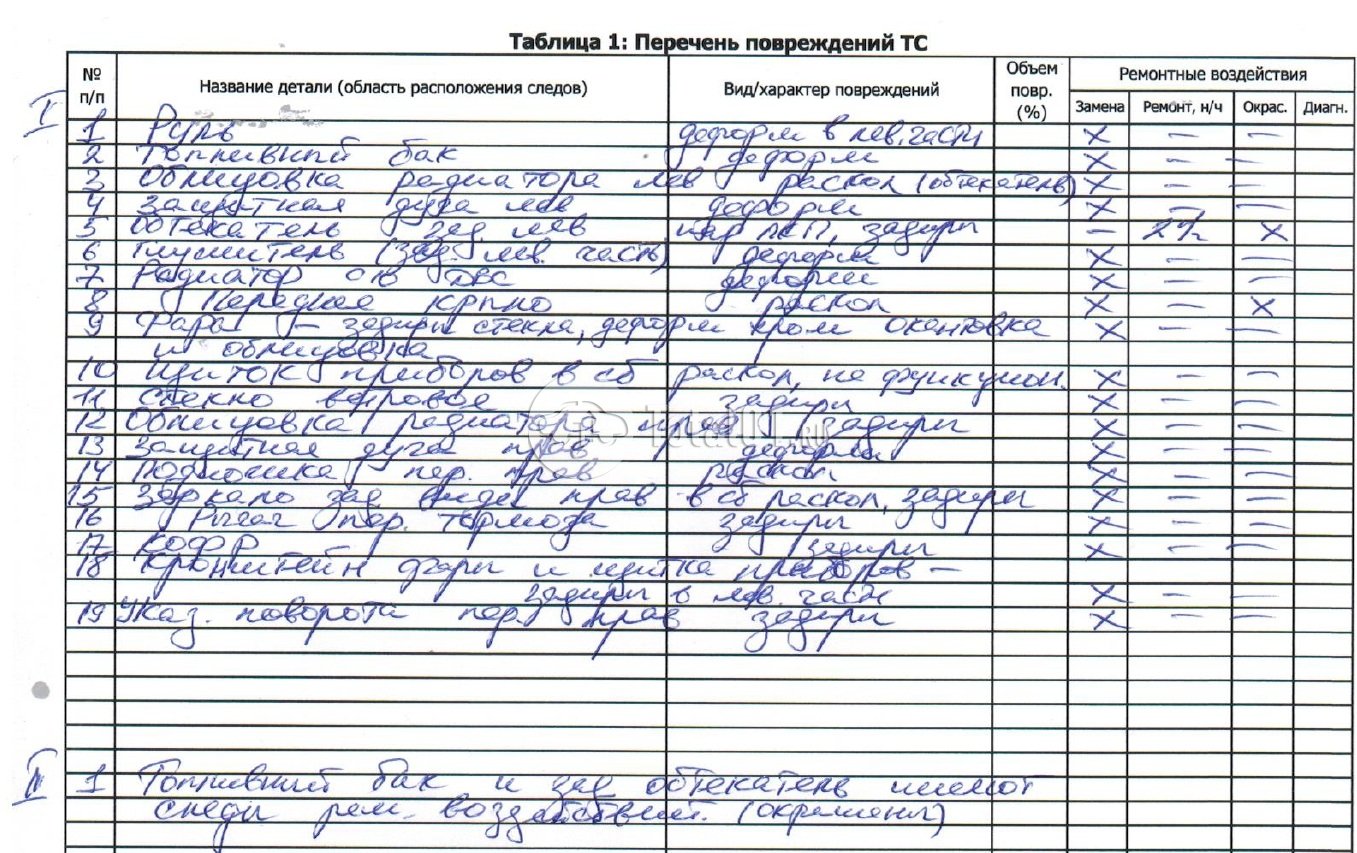 Таблица 1: Перечень повреждений ТС
№ п/п Название детали (область расположения следов) Вид/характер повреждений Объем повр. (%) Ремонтные воздействия
Замена Ремонт, н/ч Окрас. Диагн.
I
1 Руль деформ в лев. части X — —
2 Топливный бак деформ X — —
3 Облицовка радиатора лев раскол (обтекатель) X — —
4 Защитная дуга лев деформ X — —
5 Обтекатель зад. лев нар ЛКП, задиры — 2 X
6 Глушитель (зад. лев. часть) деформ X — —
7 Радиатор ДВС деформ X — —
8 Переднее крыло раскол X — X
9 Фара — задиры стекла, деформ хром окантовка X — —
и облицовка
10 Щиток приборов в сб раскол, не функцион. X — —
11 Стекло ветровое задиры X — —
12 Облицовка радиатора прав задиры X — —
13 Защитная дуга прав деформ X — —
14 Подножка пер. прав раскол X — —
15 Зеркало зад вида прав в сб раскол, задиры X — —
16 Рычаг пер. тормоза задиры X — —
17 Кофр задиры X — —
18 Кронштейн фары и щитка приборов —
задиры в лев. части X — —
19 Указ. поворота пер. прав задиры X — —
II 1 Топливный бак и зад обтекатель имеют
следы рем. воздействий. (окрашены)